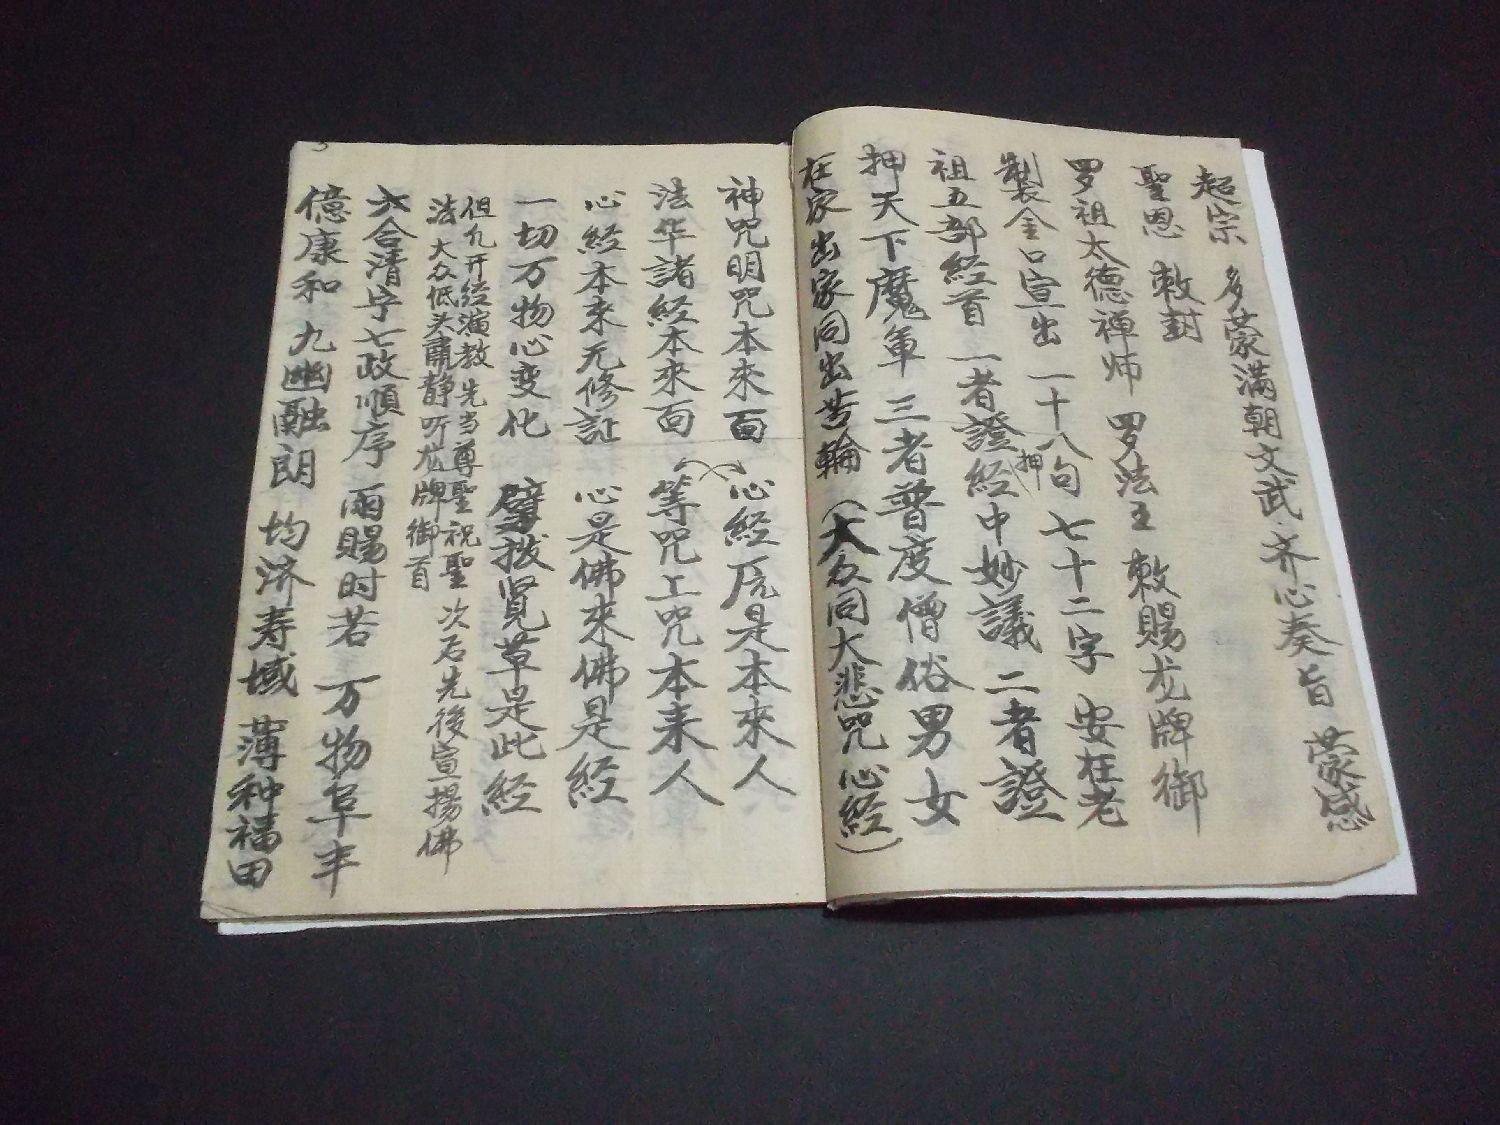 超宗 多蒙滿朝文武 齐心奏旨 蒙感
聖恩 敕封
罗祖太德禅师 罗法王 敕賜龙牌御
製金口宣出 一十八句 七十二字 安在老
祖五部經首 一者證經中妙議 二者證
押
押天下魔軍 三者普度僧俗男女
在家出家同出苦輪（大众同大悲咒心經）
神咒明咒本來面 心經原是本來人
法华諸經本來面 等咒上咒本来人
心經本來无修証 心是佛來佛是經
一切万物心变化 擘拔覓草是此經
但凡开經演教先当尊聖祝聖 次后先後宣揚佛
法 大众低头肅静听龙牌御首
六合清宁七政順序 雨賜时若 万物阜丰
億康和 九幽融朗 均济寿域 薄种福田